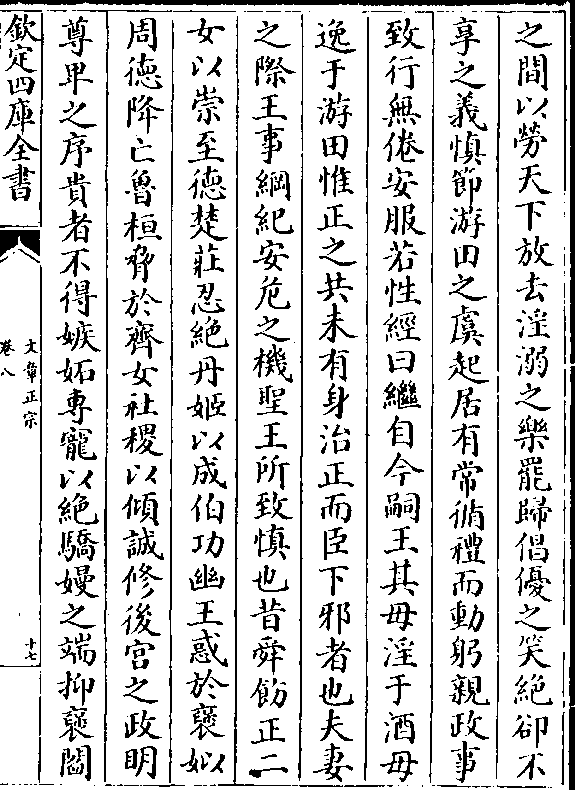 之間以勞天下放去淫溺之樂罷歸倡優之笑絶卻不
享之義慎節游田之虞起居有常循禮而動躬親政事
致行無倦安服若性經曰繼自今嗣王其毋淫于酒毋
逸于游田惟正之共未有身治正而臣下邪者也夫妻
之際王事綱紀安危之機聖王所致慎也昔舜飭正二
女以崇至德楚莊忍絶丹姬以成伯功幽王惑於襃姒
周德降亡魯桓脅於齊女社稷以傾誠修後宮之政明
尊卑之序貴者不得嫉妬專寵以絶驕嫚之端抑襃閻
欽定四庫全書
文章正宗
卷八
十七